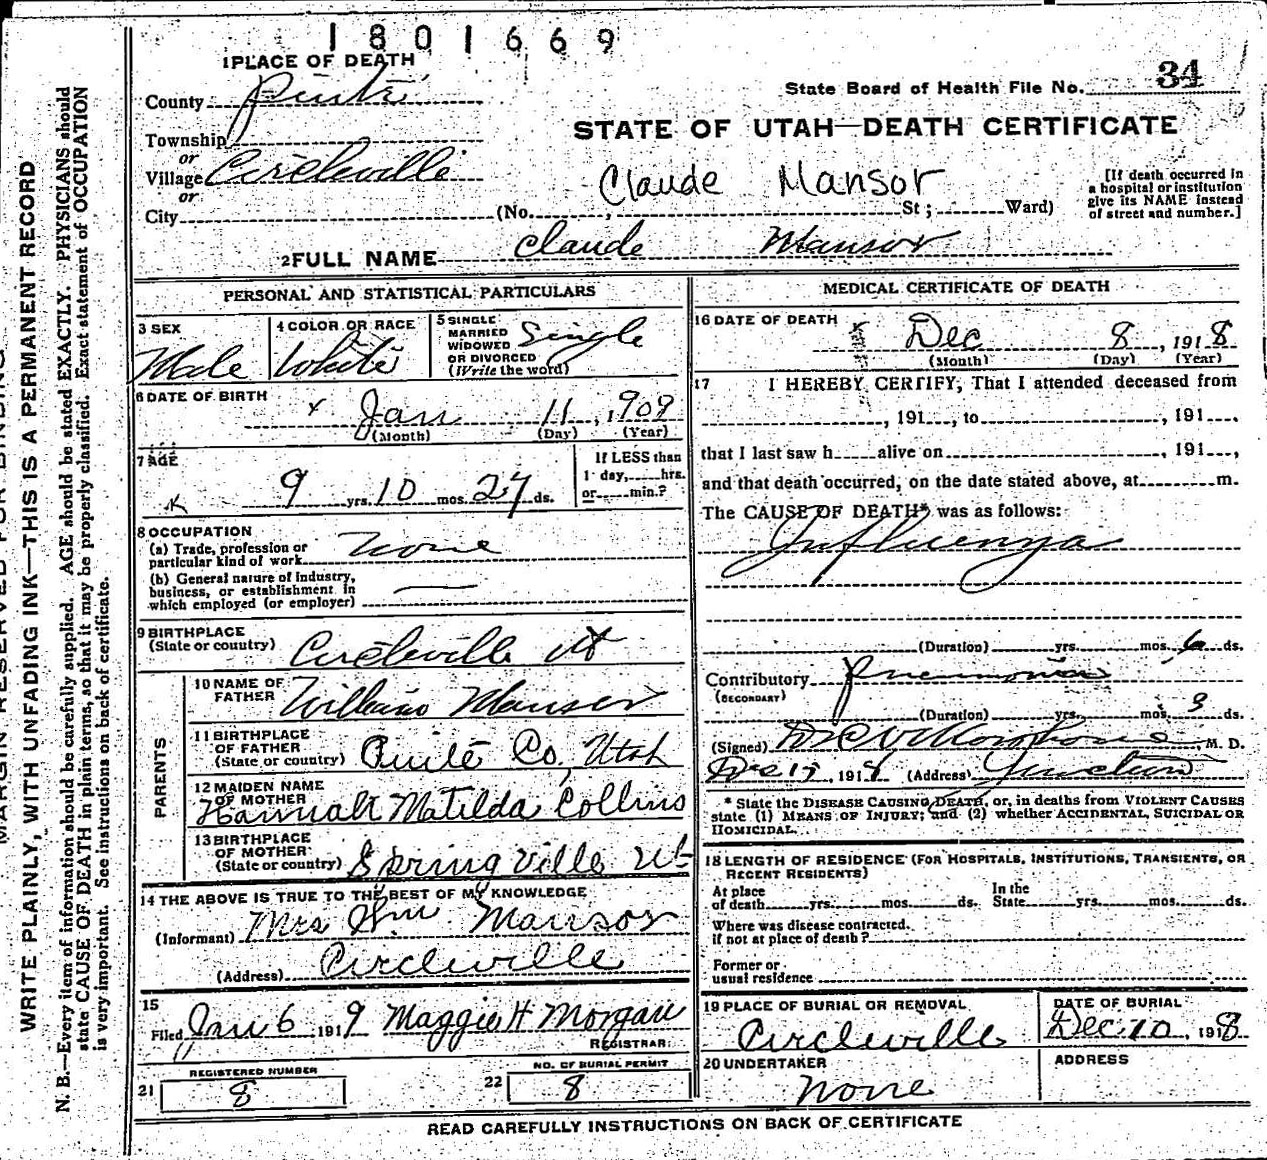 1801669
1 PLACE OF DEATH
County Piute
State Board of Health File No. 34
Township
or
Village Circleville
or
City
STATE OF UTAH—DEATH CERTIFICATE
Claude Mansor
(No. , St; Ward)
[If death occurred in
a hospital or institution
give its NAME instead
of street and number.]
2 FULL NAME Claude Mansor
PERSONAL AND STATISTICAL PARTICULARS
3 SEX
Male
4 COLOR OR RACE
White
5 SINGLE
MARRIED
WIDOWED
OR DIVORCED
(Write the word)
Single
6 DATE OF BIRTH
x Jan 11, 1909
(Month) (Day) (Year)
7 AGE
9 yrs. 10 mos. 27 ds.
If LESS than
1 day, hrs.
or min.?
8 OCCUPATION
(a) Trade, profession or
particular kind of work none
(b) General nature of industry,
business, or establishment in
which employed (or employer)
9 BIRTHPLACE
(State or country) Circleville Ut
PARENTS
10 NAME OF
FATHER William Mansor
11 BIRTHPLACE
OF FATHER
(State or country) Piute Co, Utah
12 MAIDEN NAME
OF MOTHER
Hannah Matilda Collins
13 BIRTHPLACE
OF MOTHER
(State or country) Springville Ut
14 THE ABOVE IS TRUE TO THE BEST OF MY KNOWLEDGE
(Informant) Mrs Wm Mansor
(Address) Circleville
15
Filed Jan 6 1919 Maggie H Morgan
REGISTRAR
21 REGISTERED NUMBER
8
22 NO. OF BURIAL PERMIT
8
MEDICAL CERTIFICATE OF DEATH
16 DATE OF DEATH
Dec 8, 1918
(Month) (Day) (Year)
17 I HEREBY CERTIFY, That I attended deceased from
, 191 , to , 191 ,
that I last saw h alive on , 191 ,
and that death occurred, on the date stated above, at m.
The CAUSE OF DEATH* was as follows:
Influenza
(Duration) yrs. mos. 6 ds.
Contributory Pneumonia
(SECONDARY)
(Duration) yrs. mos. 3 ds.
(Signed) , M. D.
Dec 17, 1918 (Address) Junction
* State the DISEASE CAUSING DEATH, or, in deaths from VIOLENT CAUSES
state (1) MEANS OF INJURY; and (2) whether ACCIDENTAL, SUICIDAL OR
HOMICIDAL.
18 LENGTH OF RESIDENCE (FOR HOSPITALS, INSTITUTIONS, TRANSIENTS, OR
RECENT RESIDENTS)
At place
of death yrs. mos. ds.
In the
State yrs. mos. ds.
Where was disease contracted.
if not at place of death?
Former or
usual residence
19 PLACE OF BURIAL OR REMOVAL
Circleville
DATE OF BURIAL
Dec. 10, 1918
20 UNDERTAKER
none
ADDRESS
READ CAREFULLY INSTRUCTIONS ON BACK OF CERTIFICATE
MARGIN RESERVED FOR BINDING
WRITE PLAINLY, WITH UNFADING INK—THIS IS A PERMANENT RECORD
N. B.—Every item of information should be carefully supplied. AGE should be stated EXACTLY. PHYSICIANS should
state CAUSE OF DEATH in plain terms, so that it may be properly classified. Exact statement of OCCUPATION
is very important. See instructions on back of certificate.